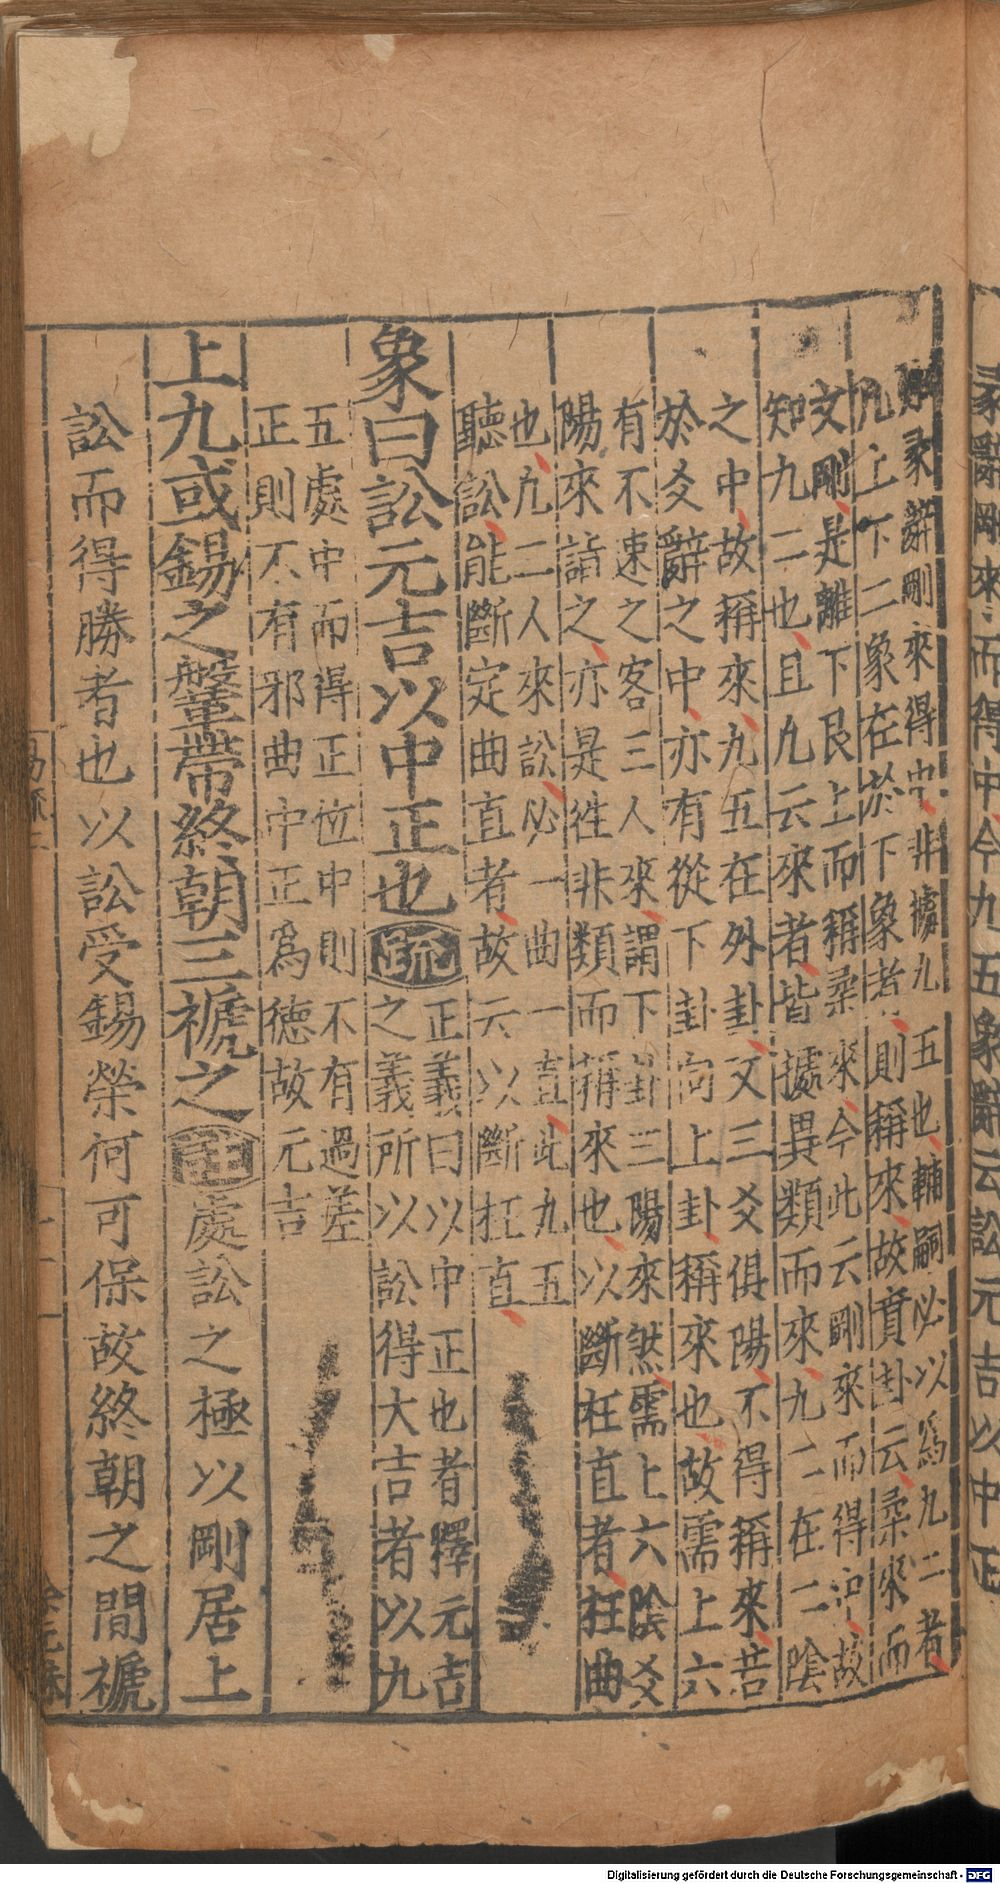 彖辭剛來而得中今九五象辭云訟元吉以中正
彖辭剛來得中非據九五也輔嗣必以爲九二者
凡上下二象在於下象者則稱來故賁卦云柔來而
文剛是離下艮上而稱柔來今此云剛來而得中故
知九二也且九云來者皆據異類而來九二在二陰
之中故稱來九五在外卦又三爻俱陽不得稱來若
於爻辭之中亦有從下卦向上卦稱來也故需上六
有不速之客三人來謂下卦三陽來然需上六陰爻
陽來詣之亦是徃非類而稱來也以斷枉直者枉曲
也凢二人來訟必一曲一直此九五
聽訟能斷定曲直者故云以斷枉直
象曰訟元吉以中正也
疏
正義曰以中正也者釋元吉
之義所以訟得大吉者以九
五處中而得正位中則不有過差
正則不有邪曲中正爲德故元吉
上九或錫之鞶帶終朝三褫之
註
處訟之極以剛居上
訟而得勝者也以訟受錫榮何可保故終朝之間褫
Digitalisierung gefördert durch die Deutsche Forschungsgemeinschaft - DFG